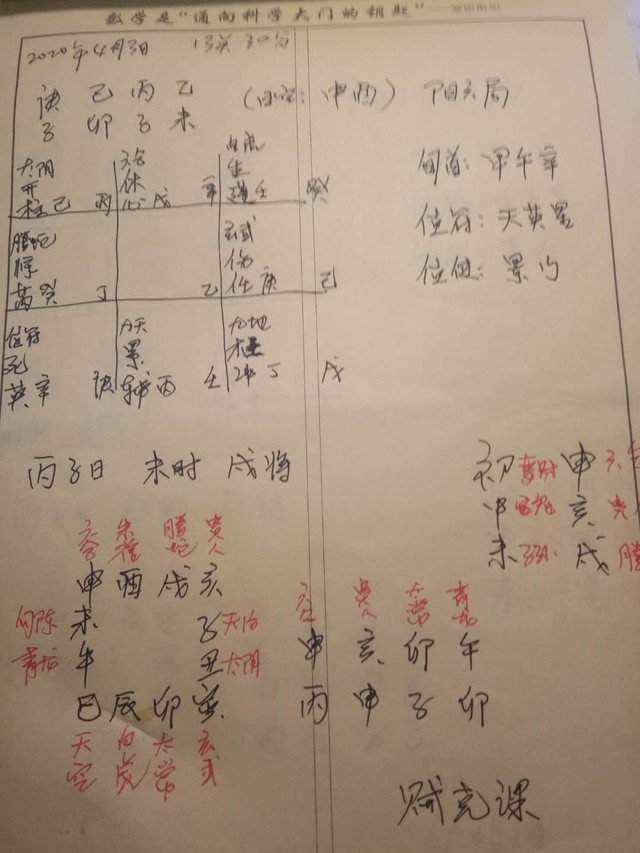 数学是“通向科学大门的钥匙”
2020年4月3日 13点30分
庚 己 丙 乙 (日空:申酉) 阳六局
子 卯 子 未
太阴 六合 白虎
开 休 生
柱己 丙 心戊 辛 壬 癸
旬首:甲午辛
螣蛇 玄武
惊 伤
芮癸 丁 乙 任庚 己
值符:天英星
值使:景门
值符 九天 九地
死 景 杜
英辛 庚 辅丙 壬 冲丁 戊
丙子日 未时 戌将
初 妻财 申 六合
中 官鬼 亥 贵人
末 子孙 戌 螣
六合 朱雀 螣蛇 贵人
申 酉 戌 亥
勾陈 未 子 天后
青龙 午 丑 太阴
巳 辰 卯 寅
天空 白虎 太常 玄武
六合 贵人 太常 青龙
申 亥 卯 午
丙 申 子 卯
贼克课